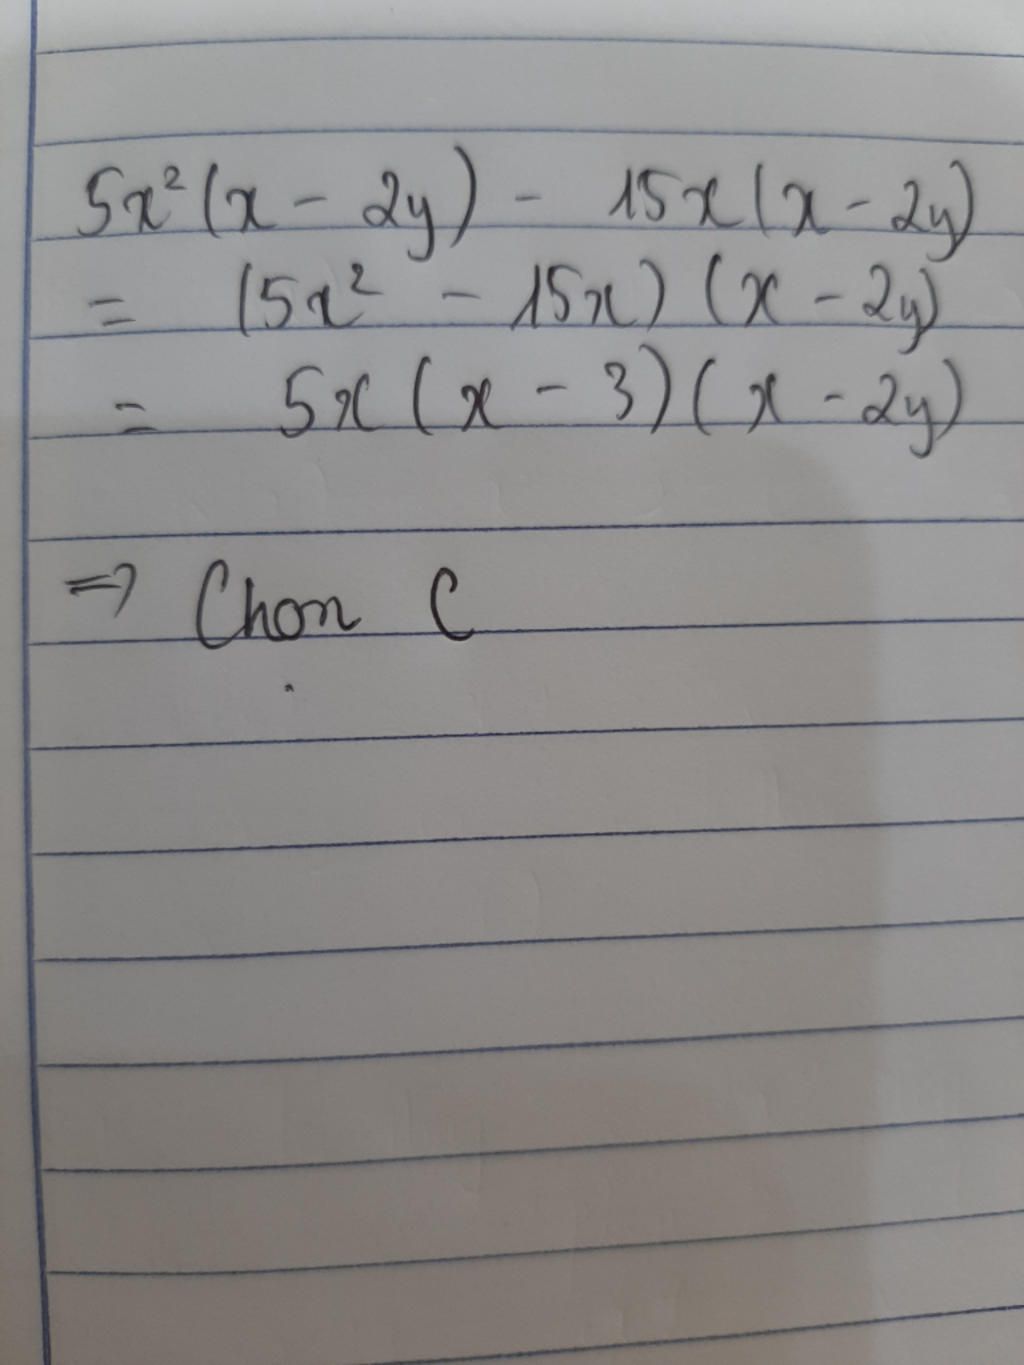 5x²(x - 2y) - 15x(x - 2y)
= (5x² - 15x)(x - 2y)
= 5x(x - 3)(x - 2y)
⇒ Chọn C